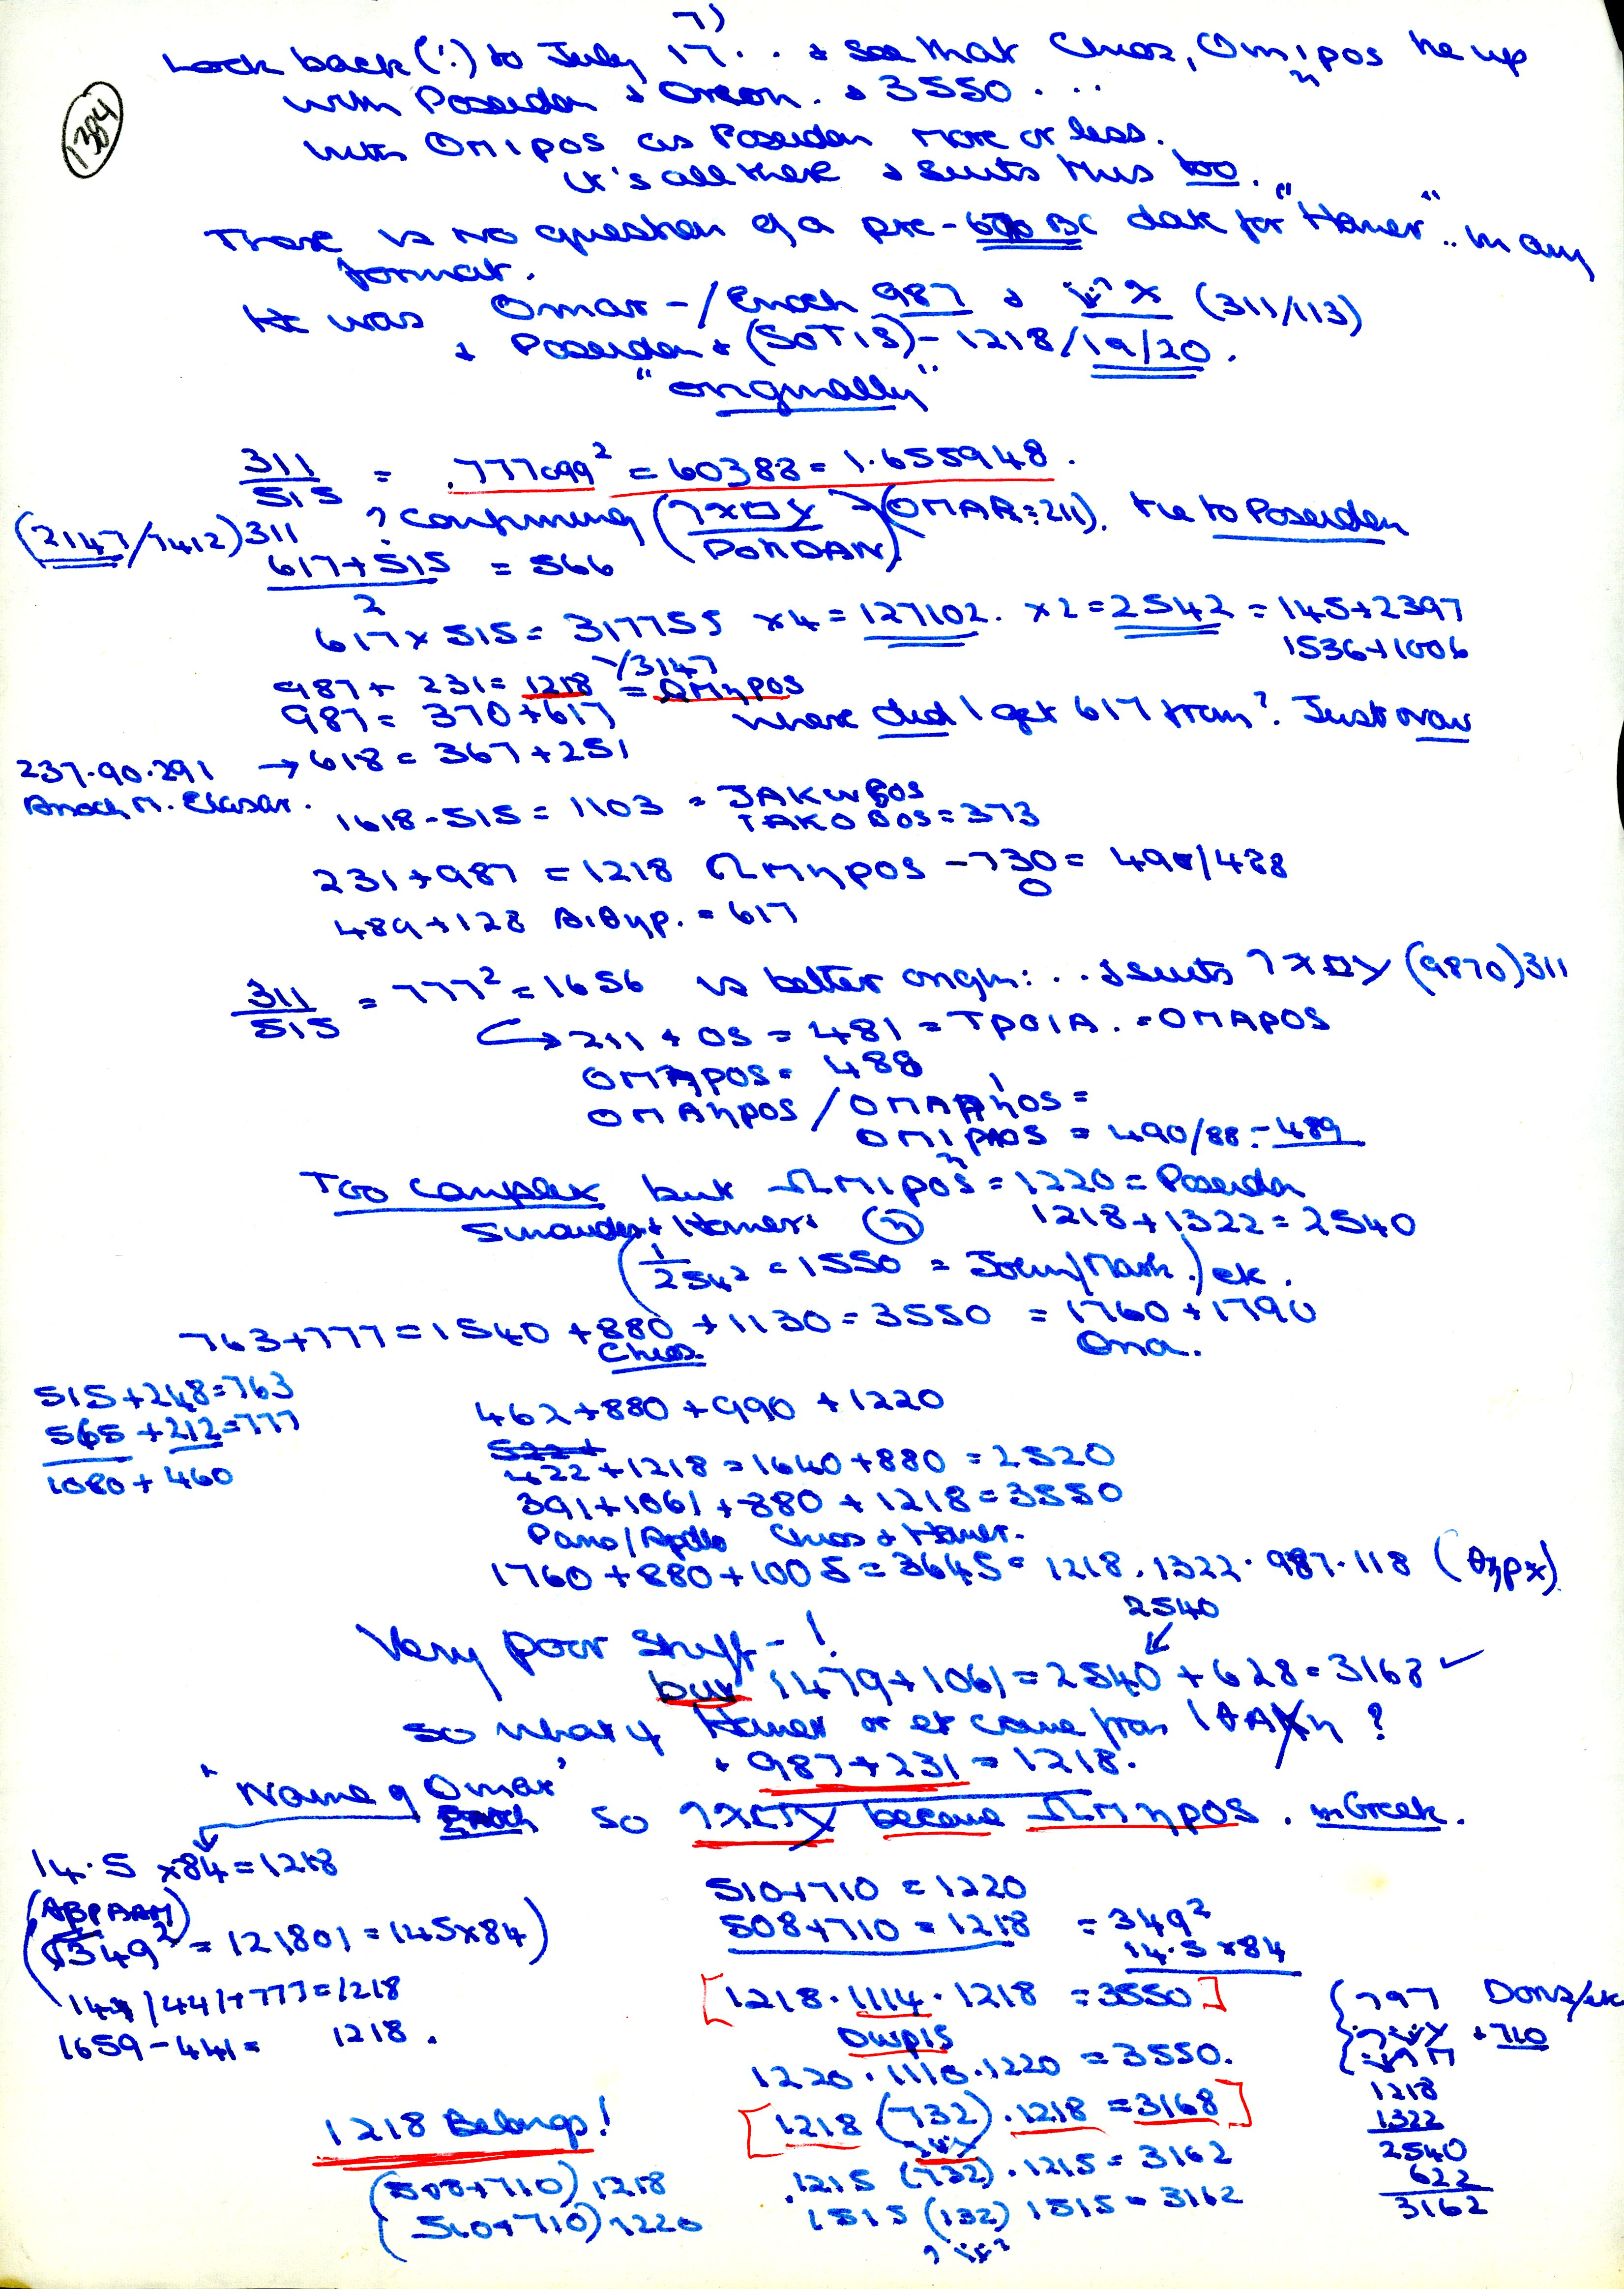 7)
Look back (!) to July 17 . . . & see that Chios, Omipos tie up
η
1384
with Poseidon & Orion. & 3550 . . .
with Omipos as Poseidon more or less.
It's all there & suits this too.
There is no question of a pre-600 BC date for "Homer" .. in any
format.
He was Omar -/Enoch 987 & (311/113)
& Poseidon & (SOTIS) - 1218/19/20.
"originally"
311/515 = .777099² = 60388 = 1.655948.
(2147/7412) 311 ? confirming ( DOMDAN) (OMAR = 211). tie to Poseidon
617+515 / 2 = 566
617 x 515 = 317755 x4 = 127102. x2 = 2542 = 145+2397
1536+1006
987 + 231 = 1218 /3147 = ΩMηpos
987 = 370+617 where did I get 617 from? Just now
237.90.291 → 618 = 367+251
Anoch M. Elasar.
1618-515 = 1103 = JAKωβOS
IAKOBOS = 373
231+987 = 1218 ΩMηpos -730 = 490/488
0
489+128 Aιθηρ. = 617
311/515 = 777² = 1656 is better origin: .. & suits (9870) 311
→ 211 + OS = 481 = TPOIA. = OMAPOS
OMηpos = 488
OMAηpos /
= 490/88 - 489
Too complex but ΩMιpos = 1220 = Poseidon
η
Smaragdus + Homer + (η) 1218+1322 = 2540
(1/254² = 1550 = John/Mark.) etc.
763+777 = 1540 +880 +1130 = 3550 = 1760 + 1790
Chios Oria.
515+248=763
565+212=777
1080+460
462+880+990+1220
522+
422+1218 = 1640+880 = 2520
391+1061+880+1218 = 3550
Pano/Apollo Chios & Homer.
1760+880+1005 = 3645 = 1218.1322.987.118 (θηρx)
2540
Very poor stuff - !
but 1479+1061 = 2540 + 628 = 3168 ✓
so what if Homer or et came from IθAKη ?
+ 987+231 = 1218.
"Name of Omar"
Enoch so became ΩMηpos. in Greek.
14.5 x84 = 1218
(ABPAAM)
(349² = 121801 = 145x84)
144/441+777 = 1218
1659-441 = 1218.
510+710 = 1220
508+710 = 1218 = 349²
14.5 x84
[1218.1114.1218 = 3550]
Dωpis
1220.1110.1220 = 3550.
[1218 (732).1218 = 3168]
.1215 (732).1215 = 3162
1515 (132) 1515 = 3162
797 Doris/etc
+710
1218
1322
2540
622
3162
1218 Belongs!
(508+710) 1218
(510+710) 1220